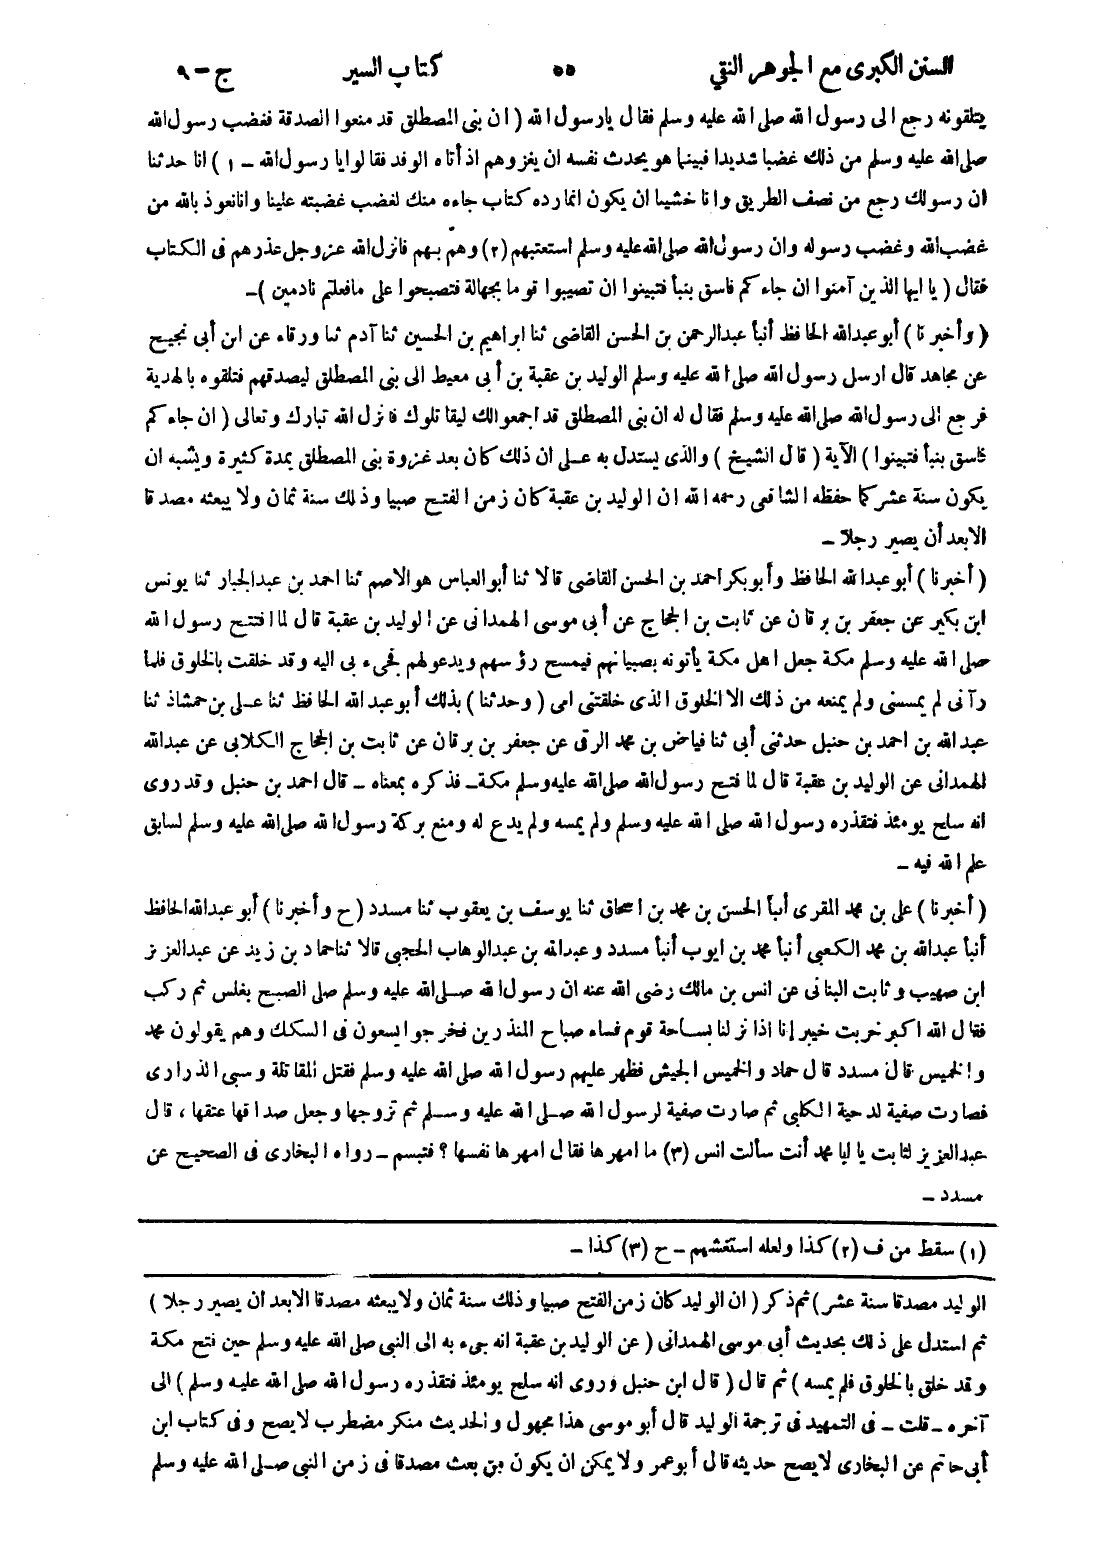 السنن الكبرى مع الجوهر النقي ٥٥ كتاب السير ج-٩
يتلقونه رجع الى رسول الله صلى الله عليه وسلم فقال يارسول الله ( ان بنى المصطلق قد منعوا الصدقة فغضب رسول الله
صلى الله عليه وسلم من ذلك غضبا شديدا فبينما هو يحدث نفسه ان يغزوهم اذ أتاه الوفد فقالوا يا رسول الله - ١ ) انا حدثنا
ان رسولك رجع من نصف الطريق وانا خشينا ان يكون انما رده كتاب جاءه منك لغضب غضبته علينا وانا نعوذ بالله من
غضب الله وغضب رسوله وان رسول الله صلى الله عليه وسلم استعتبهم (٢) وهمّ بهم فانزل الله عزوجل عذرهم فى الكتاب
فقال ( يا ايها الذين آمنوا ان جاءكم فاسق بنبأ فتبينوا ان تصيبوا قوما بجهالة فتصبحوا على ما فعلتم نادمين ) -
( وأخبرنا ) أبو عبدالله الحافظ أنبأ عبدالرحمن بن الحسن القاضى ثنا ابراهيم بن الحسين ثنا آدم ثنا ورقاء عن ابن أبى نجيح
عن مجاهد قال ارسل رسول الله صلى الله عليه وسلم الوليد بن عقبة بن أبى معيط الى بنى المصطلق ليصدقهم فتلقوه بالهدية
فرجع الى رسول الله صلى الله عليه وسلم فقال له ان بنى المصطلق قد اجمعوا لك ليقاتلوك فانزل الله تبارك وتعالى ( ان جاءكم
فاسق بنبأ فتبينوا ) الآية ( قال الشيخ ) والذى يستدل به على ان ذلك كان بعد غزوة بنى المصطلق بمدة كثيرة ويشبه ان
يكون سنة عشر كما حفظه الشافعى رحمه الله ان الوليد بن عقبة كان زمن الفتح صبيا وذلك سنة ثمان ولا يبعثه مصدقا
الا بعد أن يصير رجلا -
( أخبرنا ) أبو عبدالله الحافظ وأبو بكر احمد بن الحسن القاضى قالا ثنا أبو العباس هو الاصم ثنا احمد بن عبدالجبار ثنا يونس
ابن بكير عن جعفر بن برقان عن ثابت بن الحجاج عن أبى موسى الهمدانى عن الوليد بن عقبة قال لما افتتح رسول الله
صلى الله عليه وسلم مكة جعل اهل مكة يأتونه بصبيانهم فيمسح رؤسهم ويدعولهم فجىء بى اليه وقد خلقت بالخلوق فلما
رآنى لم يمسنى ولم يمنعه من ذلك الا الخلوق الذى خلقتنى امى ( وحدثنا ) بذلك أبو عبد الله الحافظ ثنا على بن حمشاذ ثنا
عبد الله بن احمد بن حنبل حدثنى أبى ثنا فياض بن محمد الرقى عن جعفر بن برقان عن ثابت بن الحجاج الكلابى عن عبدالله
الهمدانى عن الوليد بن عقبة قال لما فتح رسول الله صلى الله عليه وسلم مكة- فذكره بمعناه - قال احمد بن حنبل وقد روى
انه سلح يومئذ فتقذره رسول الله صلى الله عليه وسلم ولم يمسه ولم يدع له ومنع بركة رسول الله صلى الله عليه وسلم لسابق
علم الله فيه -
( أخبرنا ) على بن محمد المقرى أنبأ الحسن بن محمد بن اسحاق ثنا يوسف بن يعقوب ثنا مسدد ( ح وأخبرنا ) أبو عبدالله الحافظ
أنبأ عبدالله بن محمد الكعبى أنبأ محمد بن ايوب أنبأ مسدد وعبدالله بن عبدالوهاب الحجبى قالا ثنا حماد بن زيد عن عبدالعزيز
ابن صهيب وثابت البنانى عن انس بن مالك رضى الله عنه ان رسول الله صلى الله عليه وسلم صلى الصبح بغلس ثم ركب
فقال الله اكبر خربت خيبر إنا اذا نزلنا بساحة قوم فساء صباح المنذرين فخرجوا يسعون فى السكك وهم يقولون محمد
والخميس قال مسدد قال حماد والخميس الجيش فظهر عليهم رسول الله صلى الله عليه وسلم فقتل المقاتلة وسبى الذرارى
فصارت صفية لدحية الكلبى ثم صارت صفية لرسول الله صلى الله عليه وسلم ثم تزوجها وجعل صداقها عتقها ، قال
عبدالعزيز لثابت يا ابا محمد أنت سألت انس (٣) ما امهرها فقال امهرها نفسها ؟ فتبسم - رواه البخارى فى الصحيح عن
مسدد -
(١) سقط من ف (٢) كذا ولعله استغشهم - ح (٣) كذا -
الوليد مصدقا سنة عشر ) ثم ذكر ( ان الوليد كان زمن الفتح صبيا وذلك سنة ثمان ولا يبعثه مصدقا الا بعد ان يصير رجلا )
ثم استدل على ذلك بحديث أبى موسى الهمدانى ( عن الوليد بن عقبة انه جىء به الى النبى صلى الله عليه وسلم حين فتح مكة
وقد خلق بالخلوق فلم يمسه ) ثم قال ( قال ابن حنبل وروى انه سلح يومئذ فتقذره رسول الله صلى الله عليه وسلم ) الى
آخره - قلت - فى التمهيد فى ترجمة الوليد قال أبو موسى هذا مجهول والحديث منكر مضطرب لا يصح وفى كتاب ابن
أبى حاتم عن البخارى لا يصح حديثه قال أبو عمر ولا يمكن ان يكون من بعث مصدقا فى زمن النبى صلى الله عليه وسلم